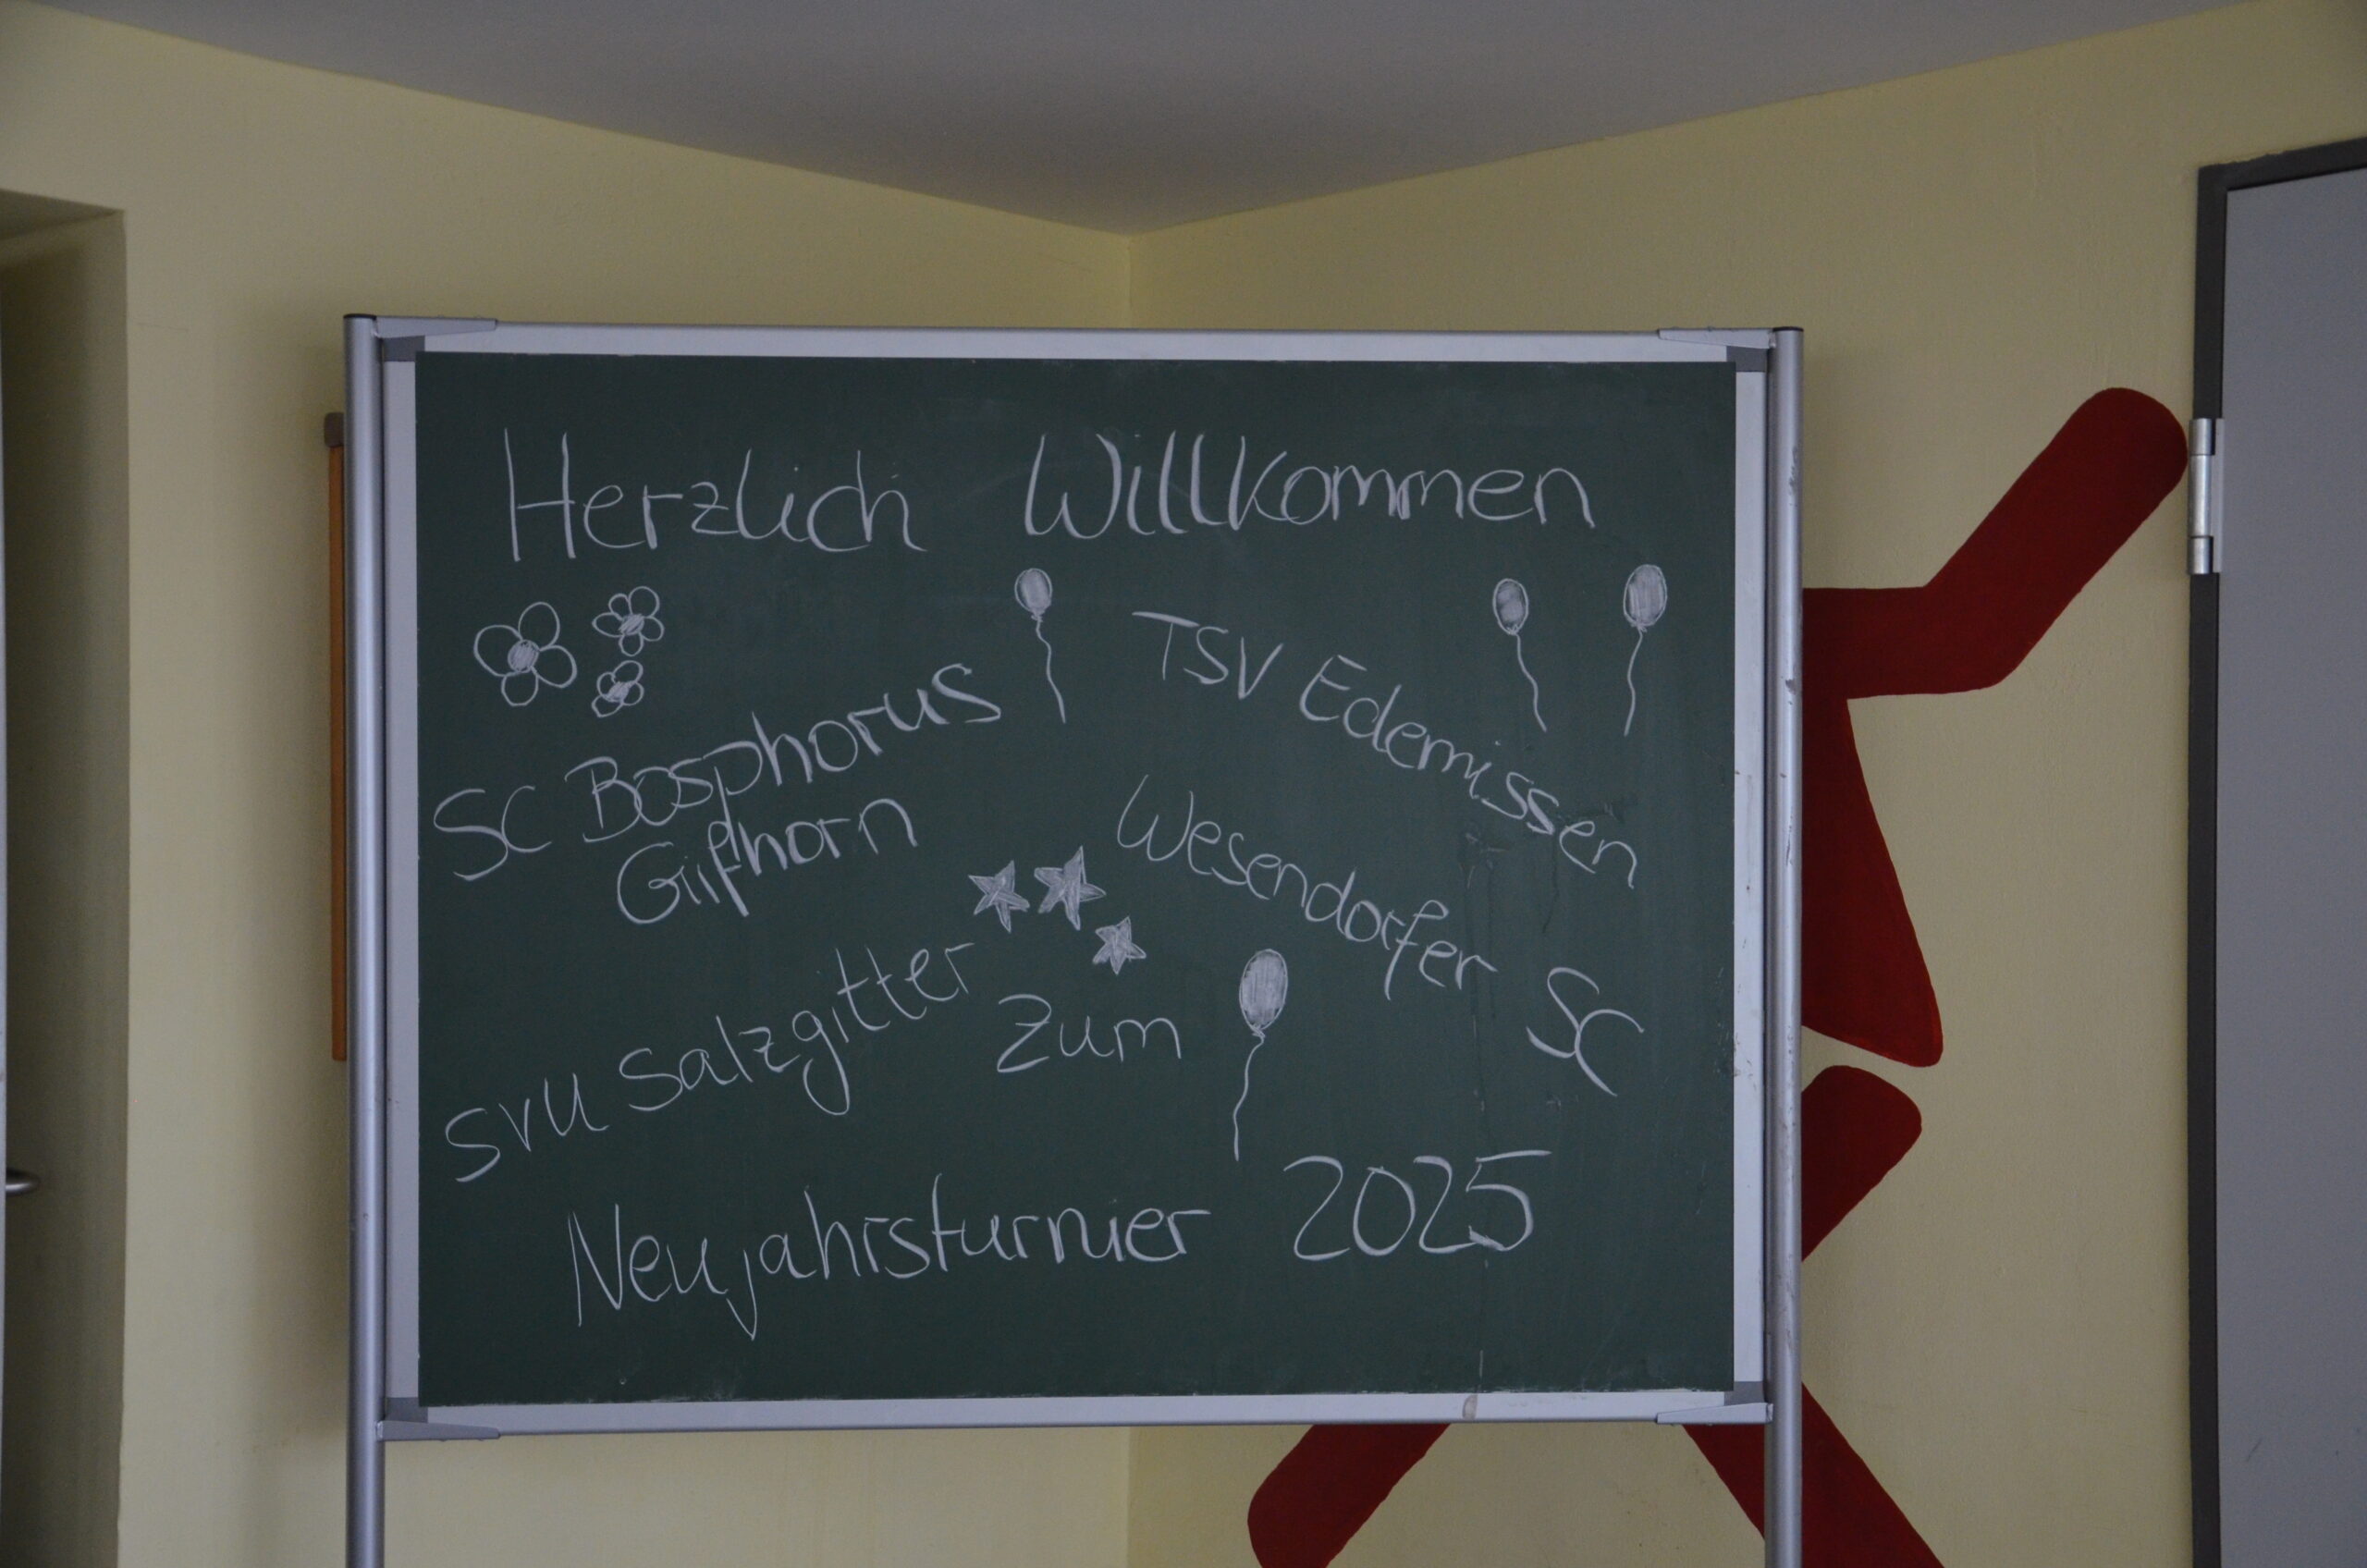 Herzlich Willkommen
SC Bosphorus
Gifhorn
TSV Edemissen
Wesendorfer SC
SVU Salzgitter
Zum
Neujahrsturnier 2025